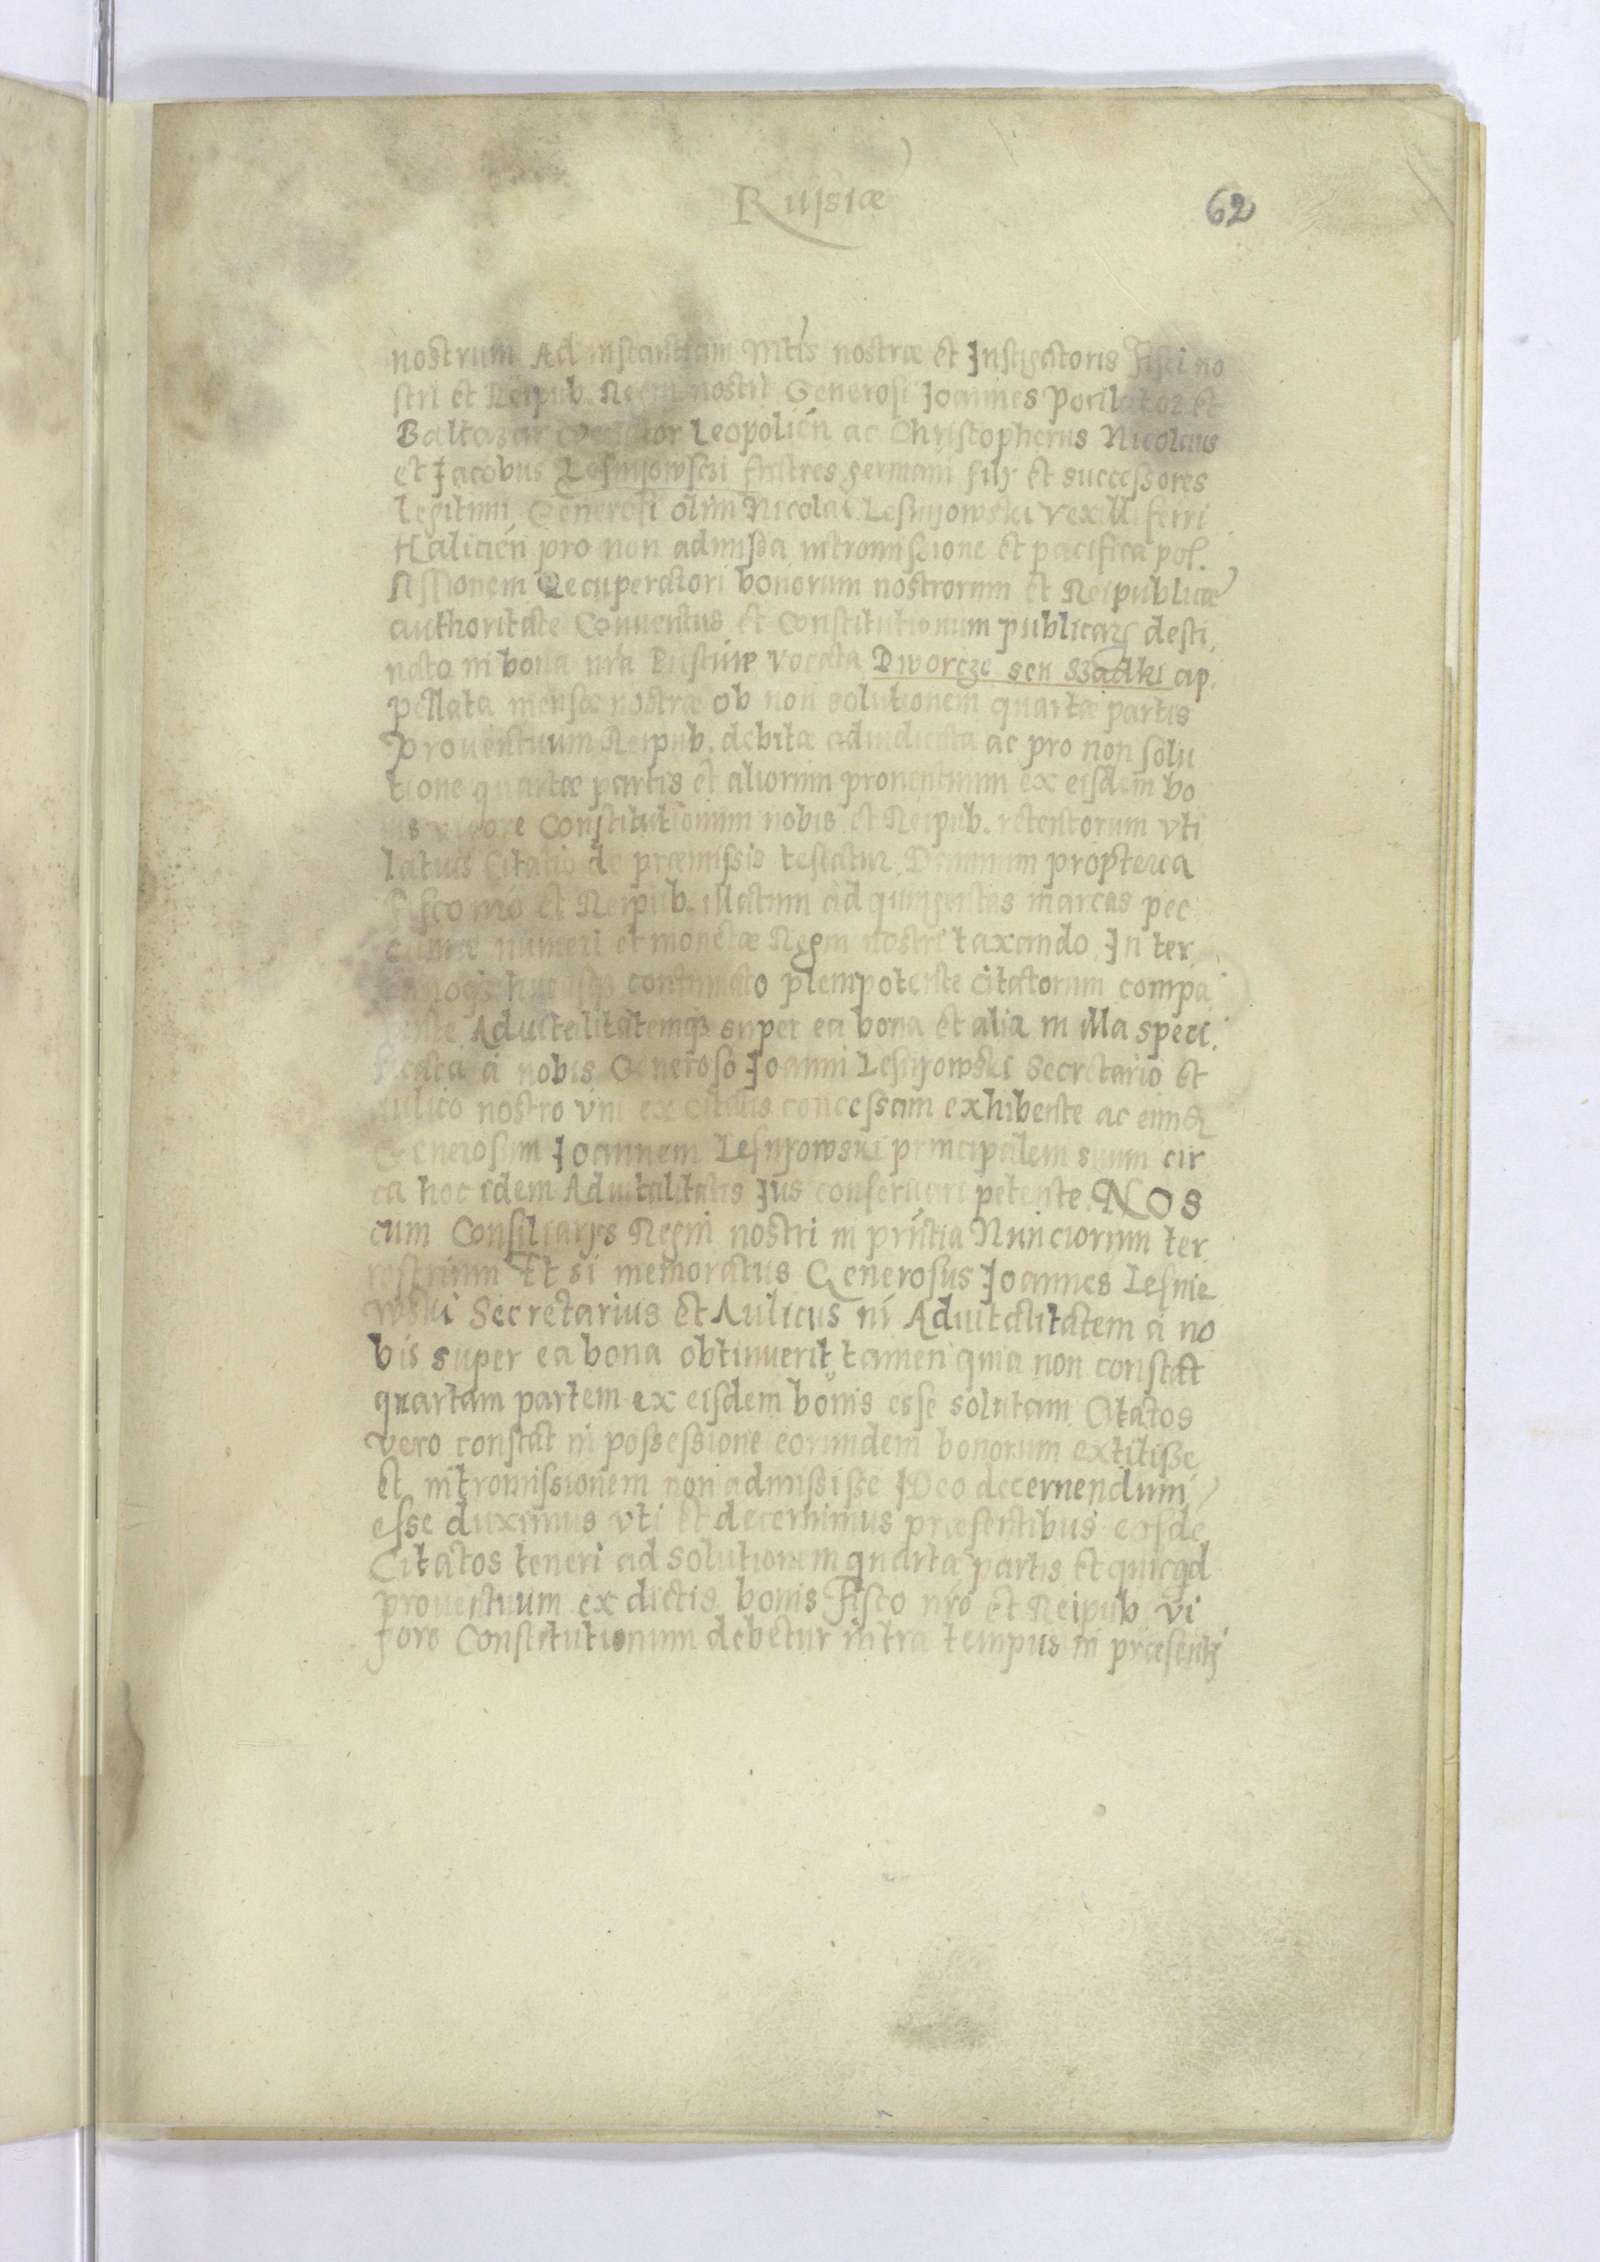 Russiæ
62
nostrum Ad instantiam Mtis nostræ et Instigatoris Fisci no
stri et Reipub. Regni nostri Generosi Joannes Pocillator et
Baltazar Leopolien̄ ac Christopherus Nicolaus
et Jacobus Lesniowsczi fratres germani filij et successores
legitimi Generosi olim Nicolai Lesniowski vexilliferi
Halicien̄ pro non admissa intromissione et pacifica pos.
sessionem Recuperatori bonorum nostrorum et Reipublicæ
authoritate Conuentus et Constitutionum publicarꝫ desti,
nato in bona nr̄a vocata Dworcze seu Szadki ap.
pellata mensæ nostræ ob non solutionem quartæ partis
prouentuum Reipub. debitæ adiudicata ac pro non solu
tione quartæ partis et aliorum prouentuum ex eisdem bo
nis vigore Constitutionum nobis et Reipub. retentorum vti
latius Citatio de præmissis testatur, Damnum propterea
Fisco nr̄o et Reipub. illatum ad quingentas marcas pec
cuniæ numeri et monetæ Regni nostri taxando. In ter
continuato plenipotente citatorum compa
rente Aduitalitatemqꝫ super ea bona et alia in illa speci.
ficata à nobis Generoso Joanni Lesniowski Secretario et
Aulico nostro vni ex citatis concessam exhibente ac eundē
Generosum Joannem Lesniowski principalem suum cir
ca hoc idem Aduitalitatis Jus conseruari petente. NOS
cum Consiliarijs Regni nostri in prn̄tia Nunciorum ter
restrium Et si memoratus Generosus Joannes Lesnie
wski Secretarius et Aulicus nr̄ Aduitalitatem à no
bis super ea bona obtinuerit, tamen quia non constat
quartam partem ex eisdem bonis esse solutam Citatos
vero constat in possessione eorundem bonorum extitisse
et intromissionem non admisisse IDeo decernendum
esse duximus vti et decernimus præsentibus eosde
Citatos teneri ad solutionem quarta partis et quicqd
prouentuum ex dictis bonis Fisco nr̄o et Reipub. vi
gore Constitutionum debetur intra tempus in præsenti